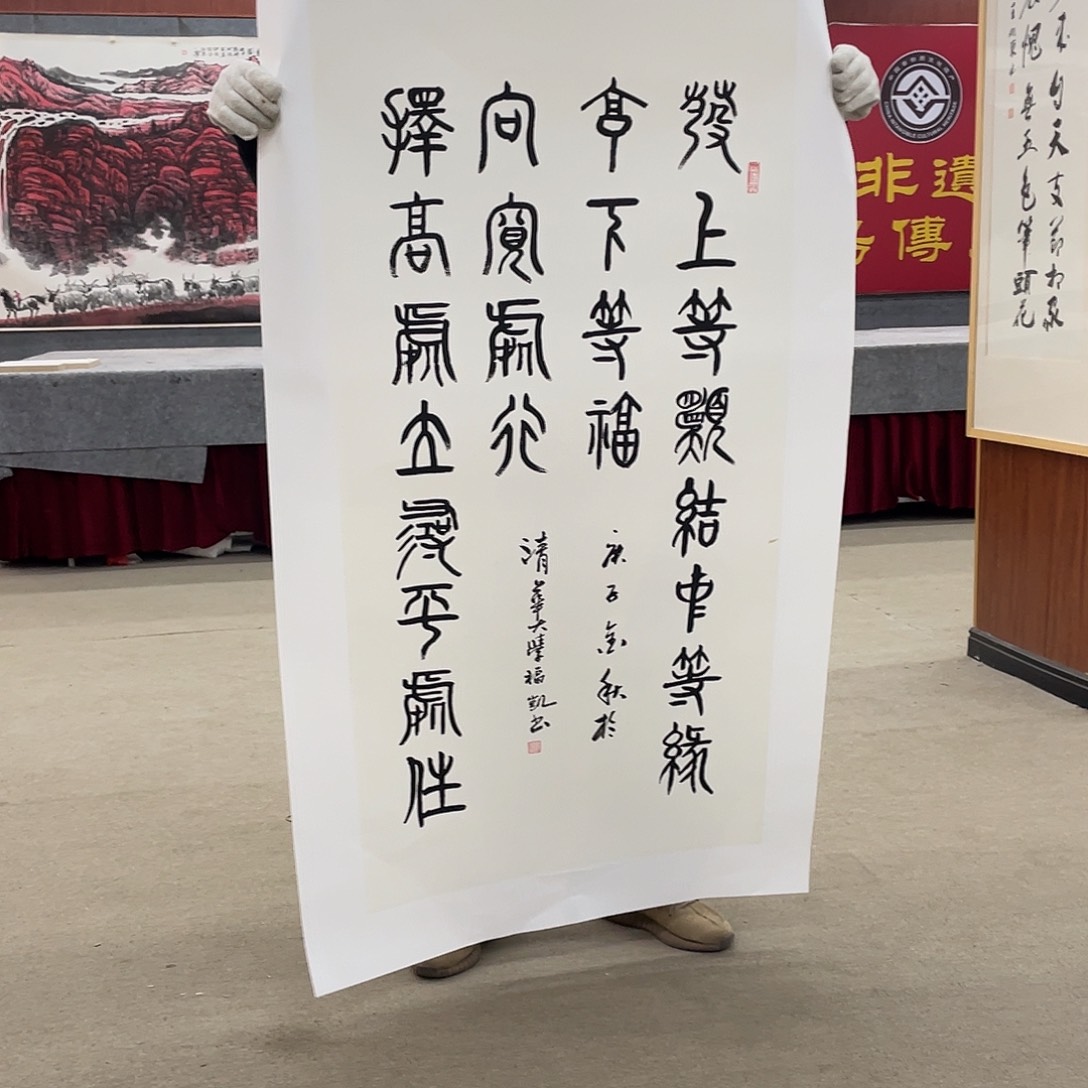 發上等願結中等緣
享下等福
庚子金秋於
擇高處立尋平處住
向寬處行
清華大學福凱書
非遺
傳
愧無五色筆頭花